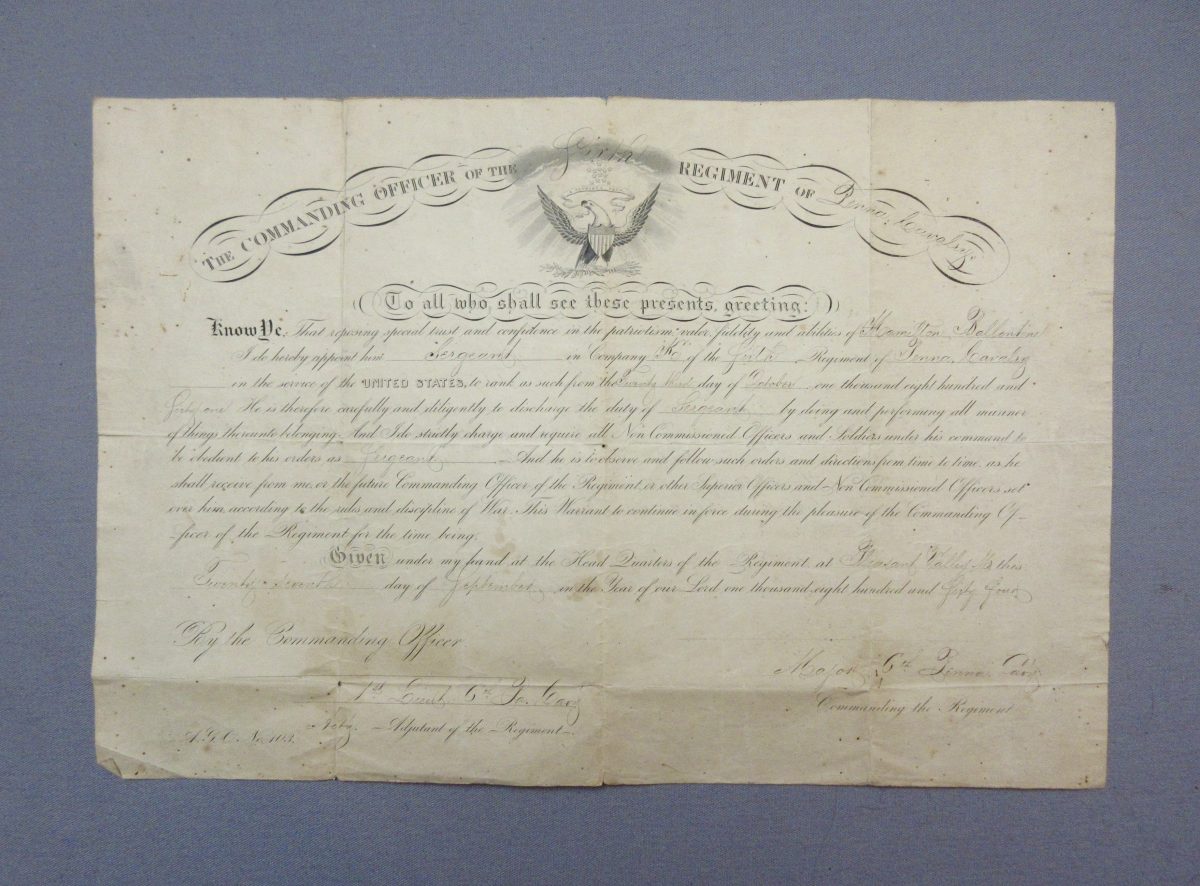 THE COMMANDING OFFICER OF THE Sixth REGIMENT OF Penna. Cavalry
To all who shall see these presents, greeting:
Know Ye, That reposing special trust and confidence in the patriotism, valor, fidelity and abilities of Hamilton Ballentine
I do hereby appoint him Sergeant in Company of the Sixth Regiment of Penna. Cavalry
in the service of the UNITED STATES, to rank as such from the Twenty third day of October one thousand eight hundred and
Sixty one He is therefore carefully and diligently to discharge the duty of Sergeant by doing and performing all manner
of things thereunto belonging. And I do strictly charge and require all Non Commissioned Officers and Soldiers under his command to
be obedient to his orders as Sergeant And he is to observe and follow such orders and directions from time to time, as he
shall receive from me, or the future Commanding Officer of the Regiment, or other Superior Officers and Non Commissioned Officers set
over him, according to the rules and discipline of War. This Warrant to continue in force during the pleasure of the Commanding Of-
-ficer of the Regiment for the time being.
Given under my hand at the Head Quarters of the Regiment at Pleasant Valley this
Twenty Seventh day of September in the Year of our Lord one thousand eight hundred and Sixty Four
By the Commanding Officer.
Major 6th Penna. Cavy
1st Lieut 6th Pa. Cavy
Commanding the Regiment
Adjutant of the Regiment
A.G.O. No. 103.